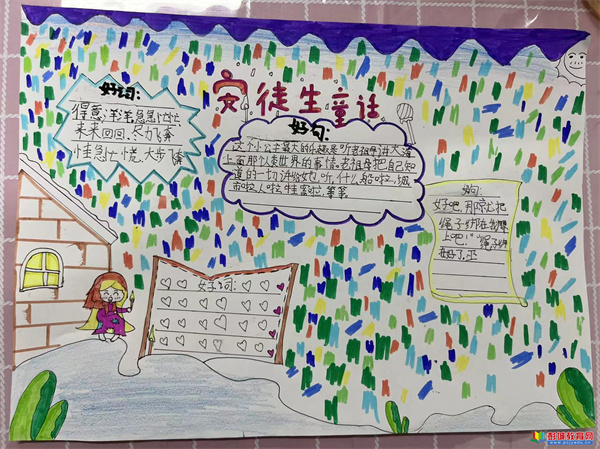 安徒生童话
好词:
得意洋洋 急急忙忙
来来回回、尽力飞奔
怪急忙慌、大步飞奔
好句:
这个小公主最大的乐趣是听老祖母讲大海
上面那个人类世界的事情。老祖母把自己知
道的一切讲给她听,什么船啦,城
市啦,人啦
等等
好词:
好句:
好吧,那你把
绳子绑在
上吧!"绳子绑
在好了,巫
彭城教育网